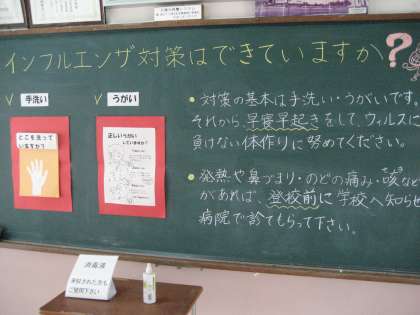 インフルエンザ対策はできていますか?
✓ 手洗い
✓ うがい
どこを洗って
いますか?
正しいうがい
していますか?
• 対策の基本は手洗い・うがいです。
それから早寝早起きをして、ウィルスに
負けない体作りに努めてください。
• 発熱や鼻づまり・のどの痛み・咳など
があれば、登校前に学校へ知らせ
病院で診てもらって下さい。
消毒液
来校された方も
ご使用下さい